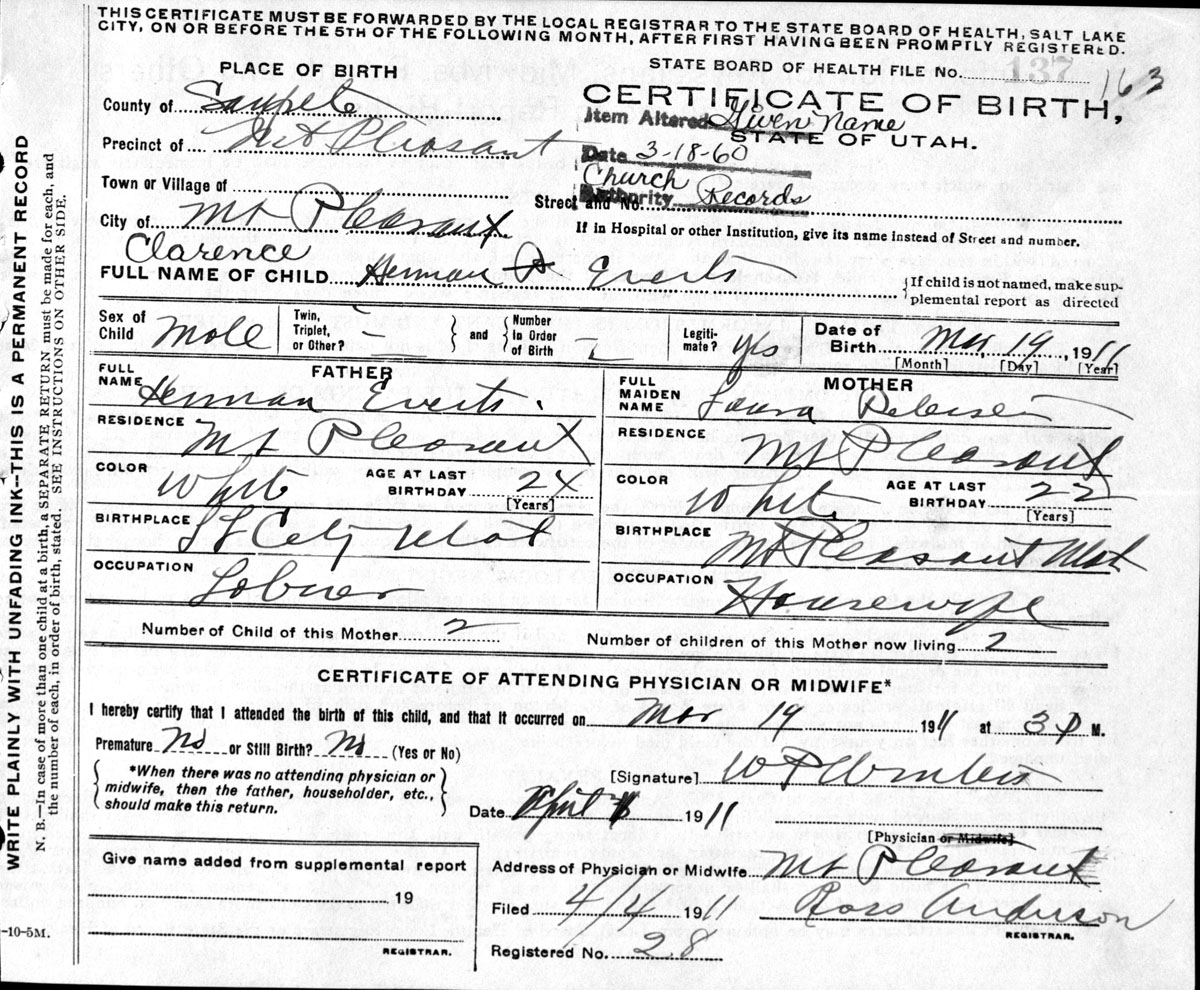 THIS CERTIFICATE MUST BE FORWARDED BY THE LOCAL REGISTRAR TO THE STATE BOARD OF HEALTH, SALT LAKE
CITY, ON OR BEFORE THE 5TH OF THE FOLLOWING MONTH, AFTER FIRST HAVING BEEN PROMPTLY REGISTERED.
STATE BOARD OF HEALTH FILE NO. 137 163
PLACE OF BIRTH
CERTIFICATE OF BIRTH,
County of Sanpete
Item Altered Given Name
STATE OF UTAH.
Precinct of Mt Pleasant
Date 3-18-60
Town or Village of
Church Records
Authority
Street and No.
City of Mt Pleasant
If in Hospital or other Institution, give its name instead of Street and number.
Clarence
FULL NAME OF CHILD Herman Everts
{If child is not named, make sup-
plemental report as directed
Sex of Child Male
Twin, Triplet, or Other?
and
Number In Order of Birth
Legiti-mate? yes
Date of Birth Mar 19, 1911
[Month] [Day] [Year]
FATHER
FULL NAME Herman Everts
RESIDENCE Mt Pleasant
COLOR White
AGE AT LAST BIRTHDAY 24
[Years]
BIRTHPLACE S L City Utah
OCCUPATION Laborer
MOTHER
FULL MAIDEN NAME Laura Petersen
RESIDENCE Mt Pleasant
COLOR White
AGE AT LAST BIRTHDAY 22
[Years]
BIRTHPLACE Mt Pleasant Utah
OCCUPATION Housewife
Number of Child of this Mother 2
Number of children of this Mother now living 2
CERTIFICATE OF ATTENDING PHYSICIAN OR MIDWIFE*
I hereby certify that I attended the birth of this child, and that it occurred on Mar 19 1911 at 3 P M.
Premature No or Still Birth? No (Yes or No)
*When there was no attending physician or
midwife, then the father, householder, etc.,
should make this return.
[Signature]
Date April 1911
[Physician or Midwife]
Give name added from supplemental report
19
REGISTRAR.
Address of Physician or Midwife Mt Pleasant
Filed 4/4 1911 Ross Anderson
REGISTRAR.
Registered No. 28
-10-5M.
WRITE PLAINLY WITH UNFADING INK--THIS IS A PERMANENT RECORD
N. B.—In case of more than one child at a birth, a SEPARATE RETURN must be made for each, and
the number of each, in order of birth, stated. SEE INSTRUCTIONS ON OTHER SIDE.